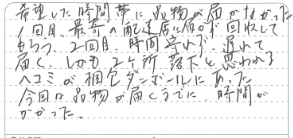 希望した時間帯に品物が届かなかった
1回目、最寄の配達店に届き 回収して
もらう、2回目、時間 守れず、遅れて
届く、しかも2ヶ所 落下と思われる
ヘコミが 梱包ダンボールにあった
今回は品物が届くまでに、時間が
かかった。